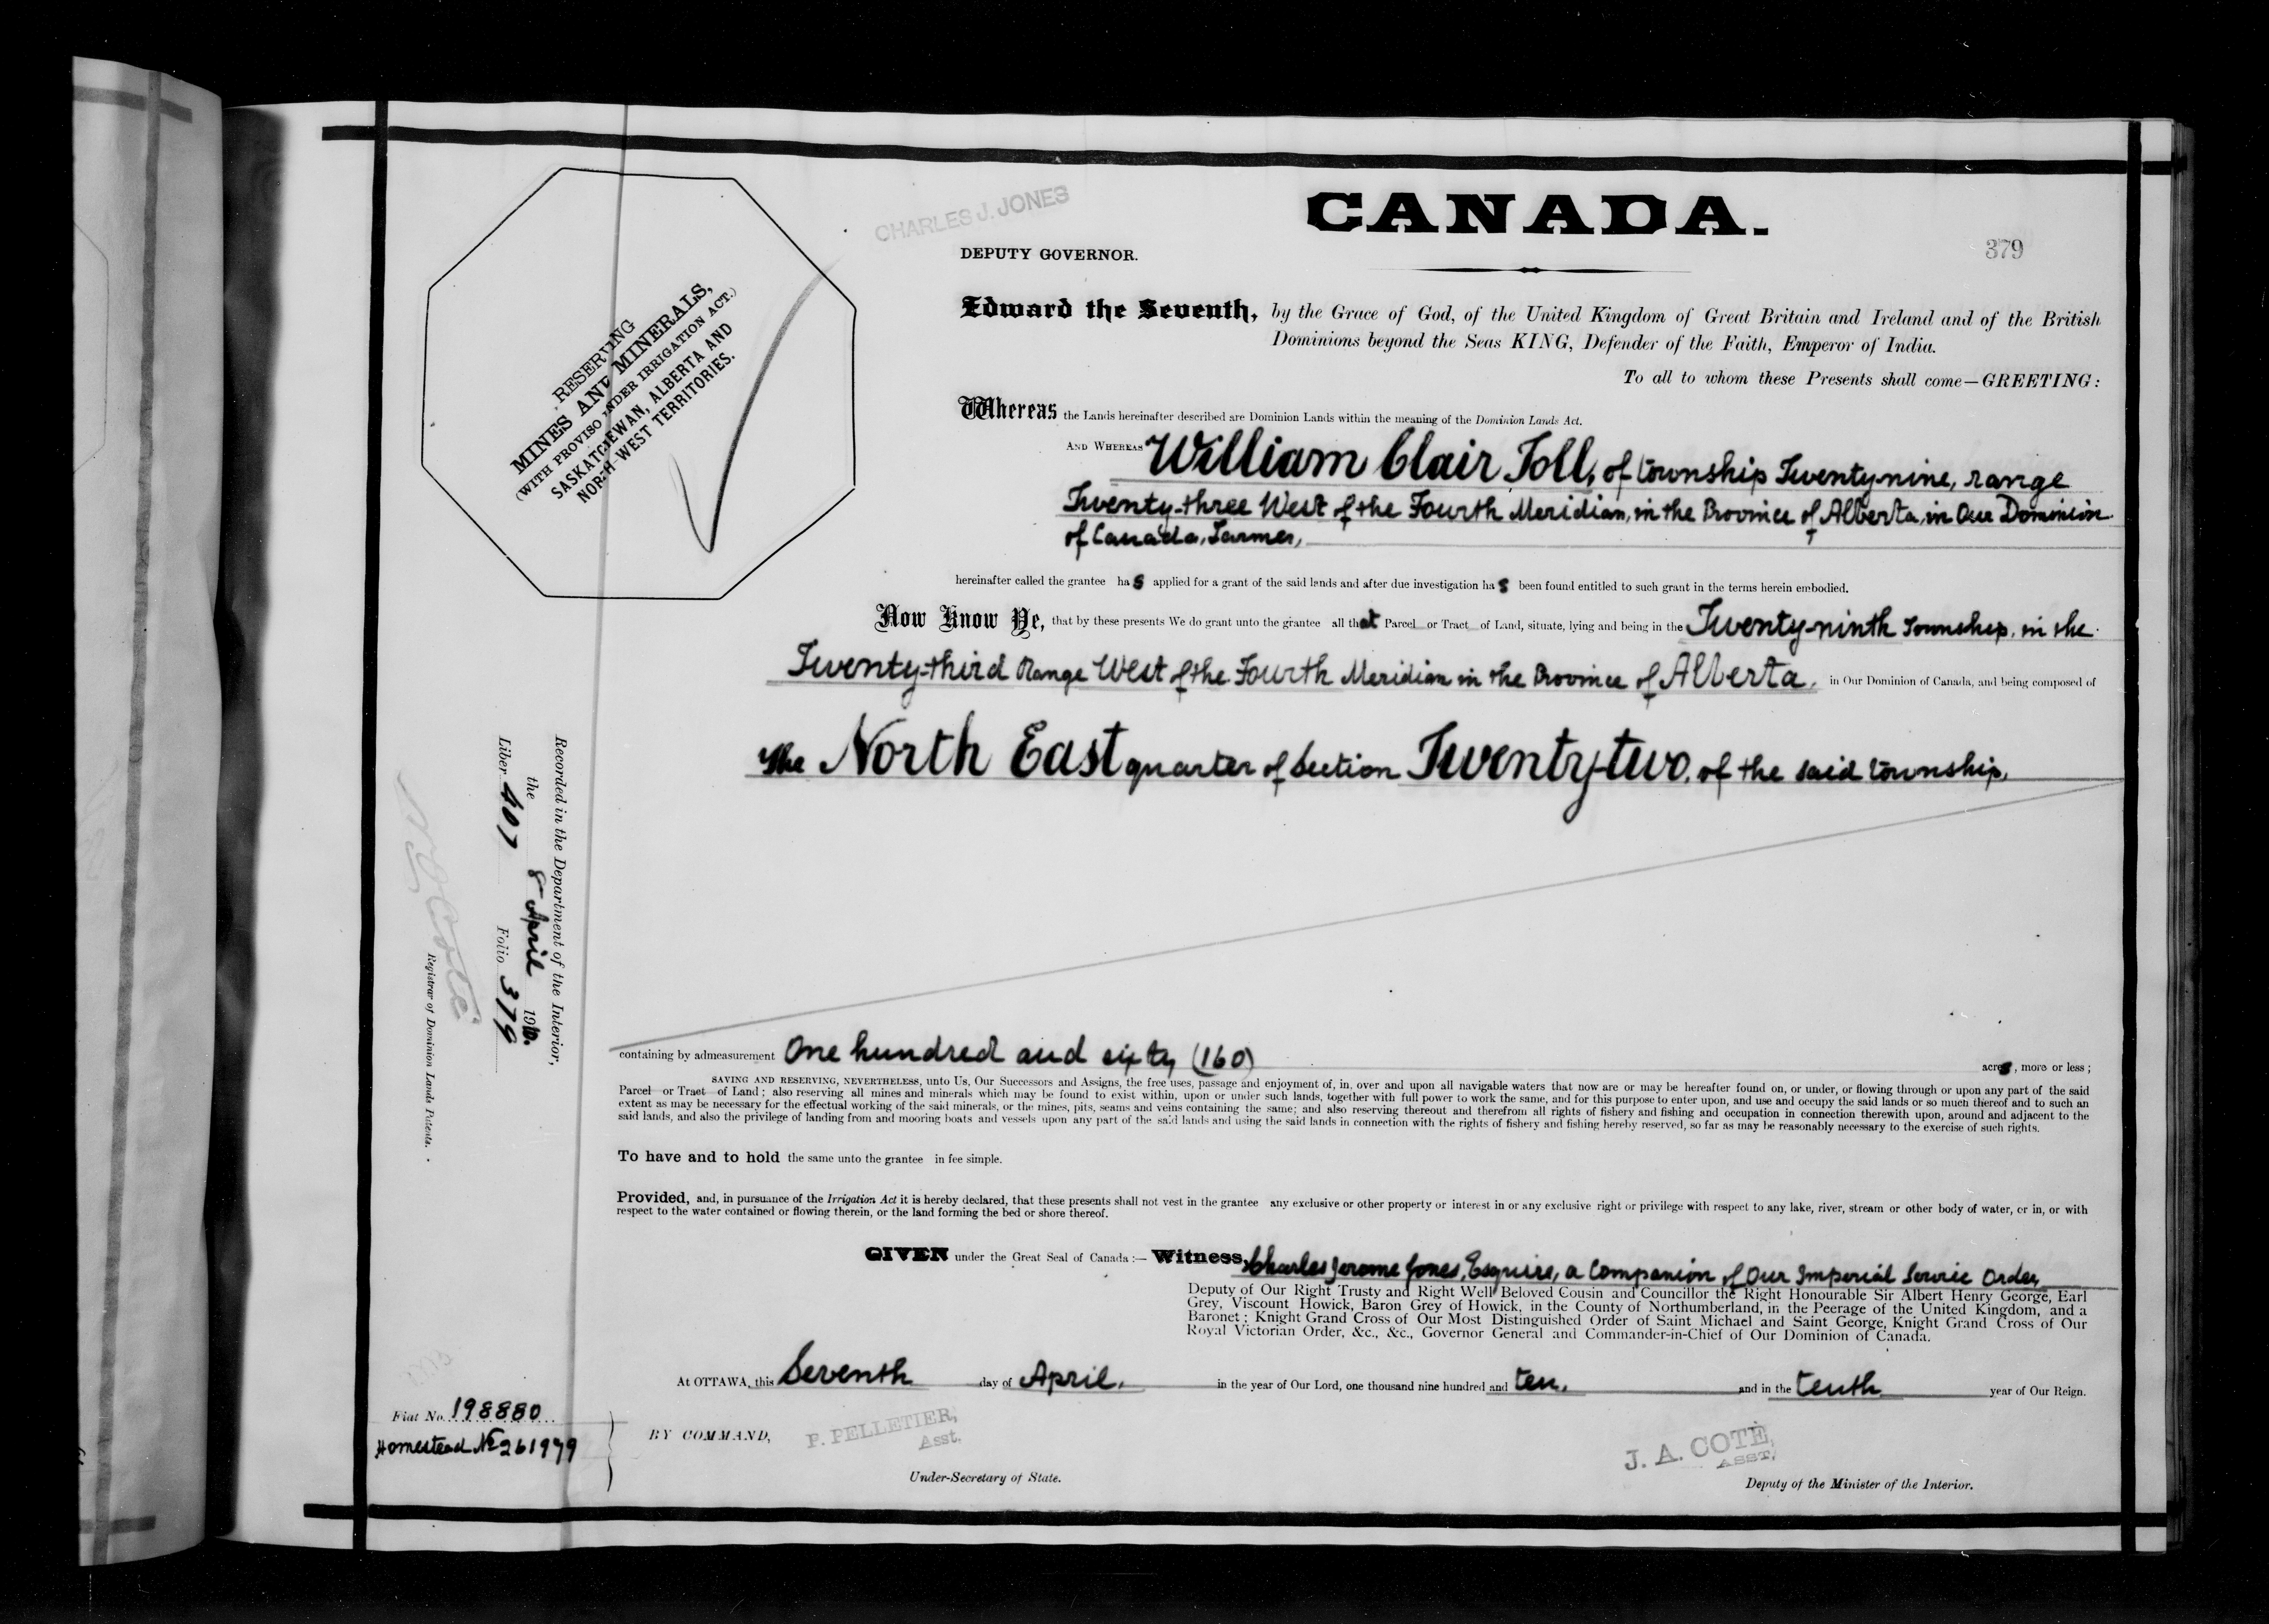 CHARLES J. JONES
CANADA.
DEPUTY GOVERNOR.
379
Edward the Seventh, by the Grace of God, of the United Kingdom of Great Britain and Ireland and of the British
Dominions beyond the Seas KING, Defender of the Faith, Emperor of India.
To all to whom these Presents shall come—GREETING:
RESERVING
MINES AND MINERALS,
(WITH PROVISO UNDER IRRIGATION ACT.)
SASKATCHEWAN, ALBERTA AND
NORTH-WEST TERRITORIES.
Whereas the Lands hereinafter described are Dominion Lands within the meaning of the Dominion Lands Act.
AND WHEREAS William Clair Toll, of township Twenty-nine, range
Twenty-three West of the Fourth Meridian, in the Province of Alberta, in Our Dominion
of Canada, Farmer,
hereinafter called the grantee has applied for a grant of the said lands and after due investigation has been found entitled to such grant in the terms herein embodied.
Now Know Ye, that by these presents We do grant unto the grantee all that Parcel or Tract of Land, situate, lying and being in the Twenty-ninth Township, in the
Twenty-third Range West of the Fourth Meridian in the Province of Alberta, in Our Dominion of Canada, and being composed of
The North East quarter of Section Twenty-two, of the said township,
containing by admeasurement One hundred and sixty (160) acres, more or less;
SAVING AND RESERVING, NEVERTHELESS, unto Us, Our Successors and Assigns, the free uses, passage and enjoyment of, in, over and upon all navigable waters that now are or may be hereafter found on, or under, or flowing through or upon any part of the said
Parcel or Tract of Land; also reserving all mines and minerals which may be found to exist within, upon or under such lands, together with full power to work the same, and for this purpose to enter upon, and use and occupy the said lands or so much thereof and to such an
extent as may be necessary for the effectual working of the said minerals, or the mines, pits, seams and veins containing the same; and also reserving thereout and therefrom all rights of fishery and fishing and occupation in connection therewith upon, around and adjacent to the
said lands, and also the privilege of landing from and mooring boats and vessels upon any part of the said lands and using the said lands in connection with the rights of fishery and fishing hereby reserved, so far as may be reasonably necessary to the exercise of such rights.
To have and to hold the same unto the grantee in fee simple.
Provided, and, in pursuance of the Irrigation Act it is hereby declared, that these presents shall not vest in the grantee any exclusive or other property or interest in or any exclusive right or privilege with respect to any lake, river, stream or other body of water, or in, or with
respect to the water contained or flowing therein, or the land forming the bed or shore thereof.
GIVEN under the Great Seal of Canada:— Witness, Charles Jerome Jones, Esquire, a Companion of Our Imperial Service Order,
Deputy of Our Right Trusty and Right Well Beloved Cousin and Councillor the Right Honourable Sir Albert Henry George, Earl
Grey, Viscount Howick, Baron Grey of Howick, in the County of Northumberland, in the Peerage of the United Kingdom, and a
Baronet; Knight Grand Cross of Our Most Distinguished Order of Saint Michael and Saint George, Knight Grand Cross of Our
Royal Victorian Order, &c., &c., Governor General and Commander-in-Chief of Our Dominion of Canada.
At OTTAWA, this Seventh day of April, in the year of Our Lord, one thousand nine hundred and ten, and in the tenth year of Our Reign.
BY COMMAND,
P. PELLETIER,
Asst.
Under-Secretary of State.
J. A. COTÉ,
ASST.
Deputy of the Minister of the Interior.
Recorded in the Department of the Interior,
the 8 April 1910.
Liber 407 Folio 379
Registrar of Dominion Lands Patents.
Fiat No. 198880
Homestead No 261979